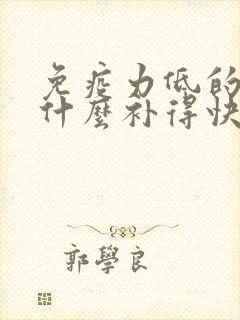 免疫力低的
什麼补得快
郭學良